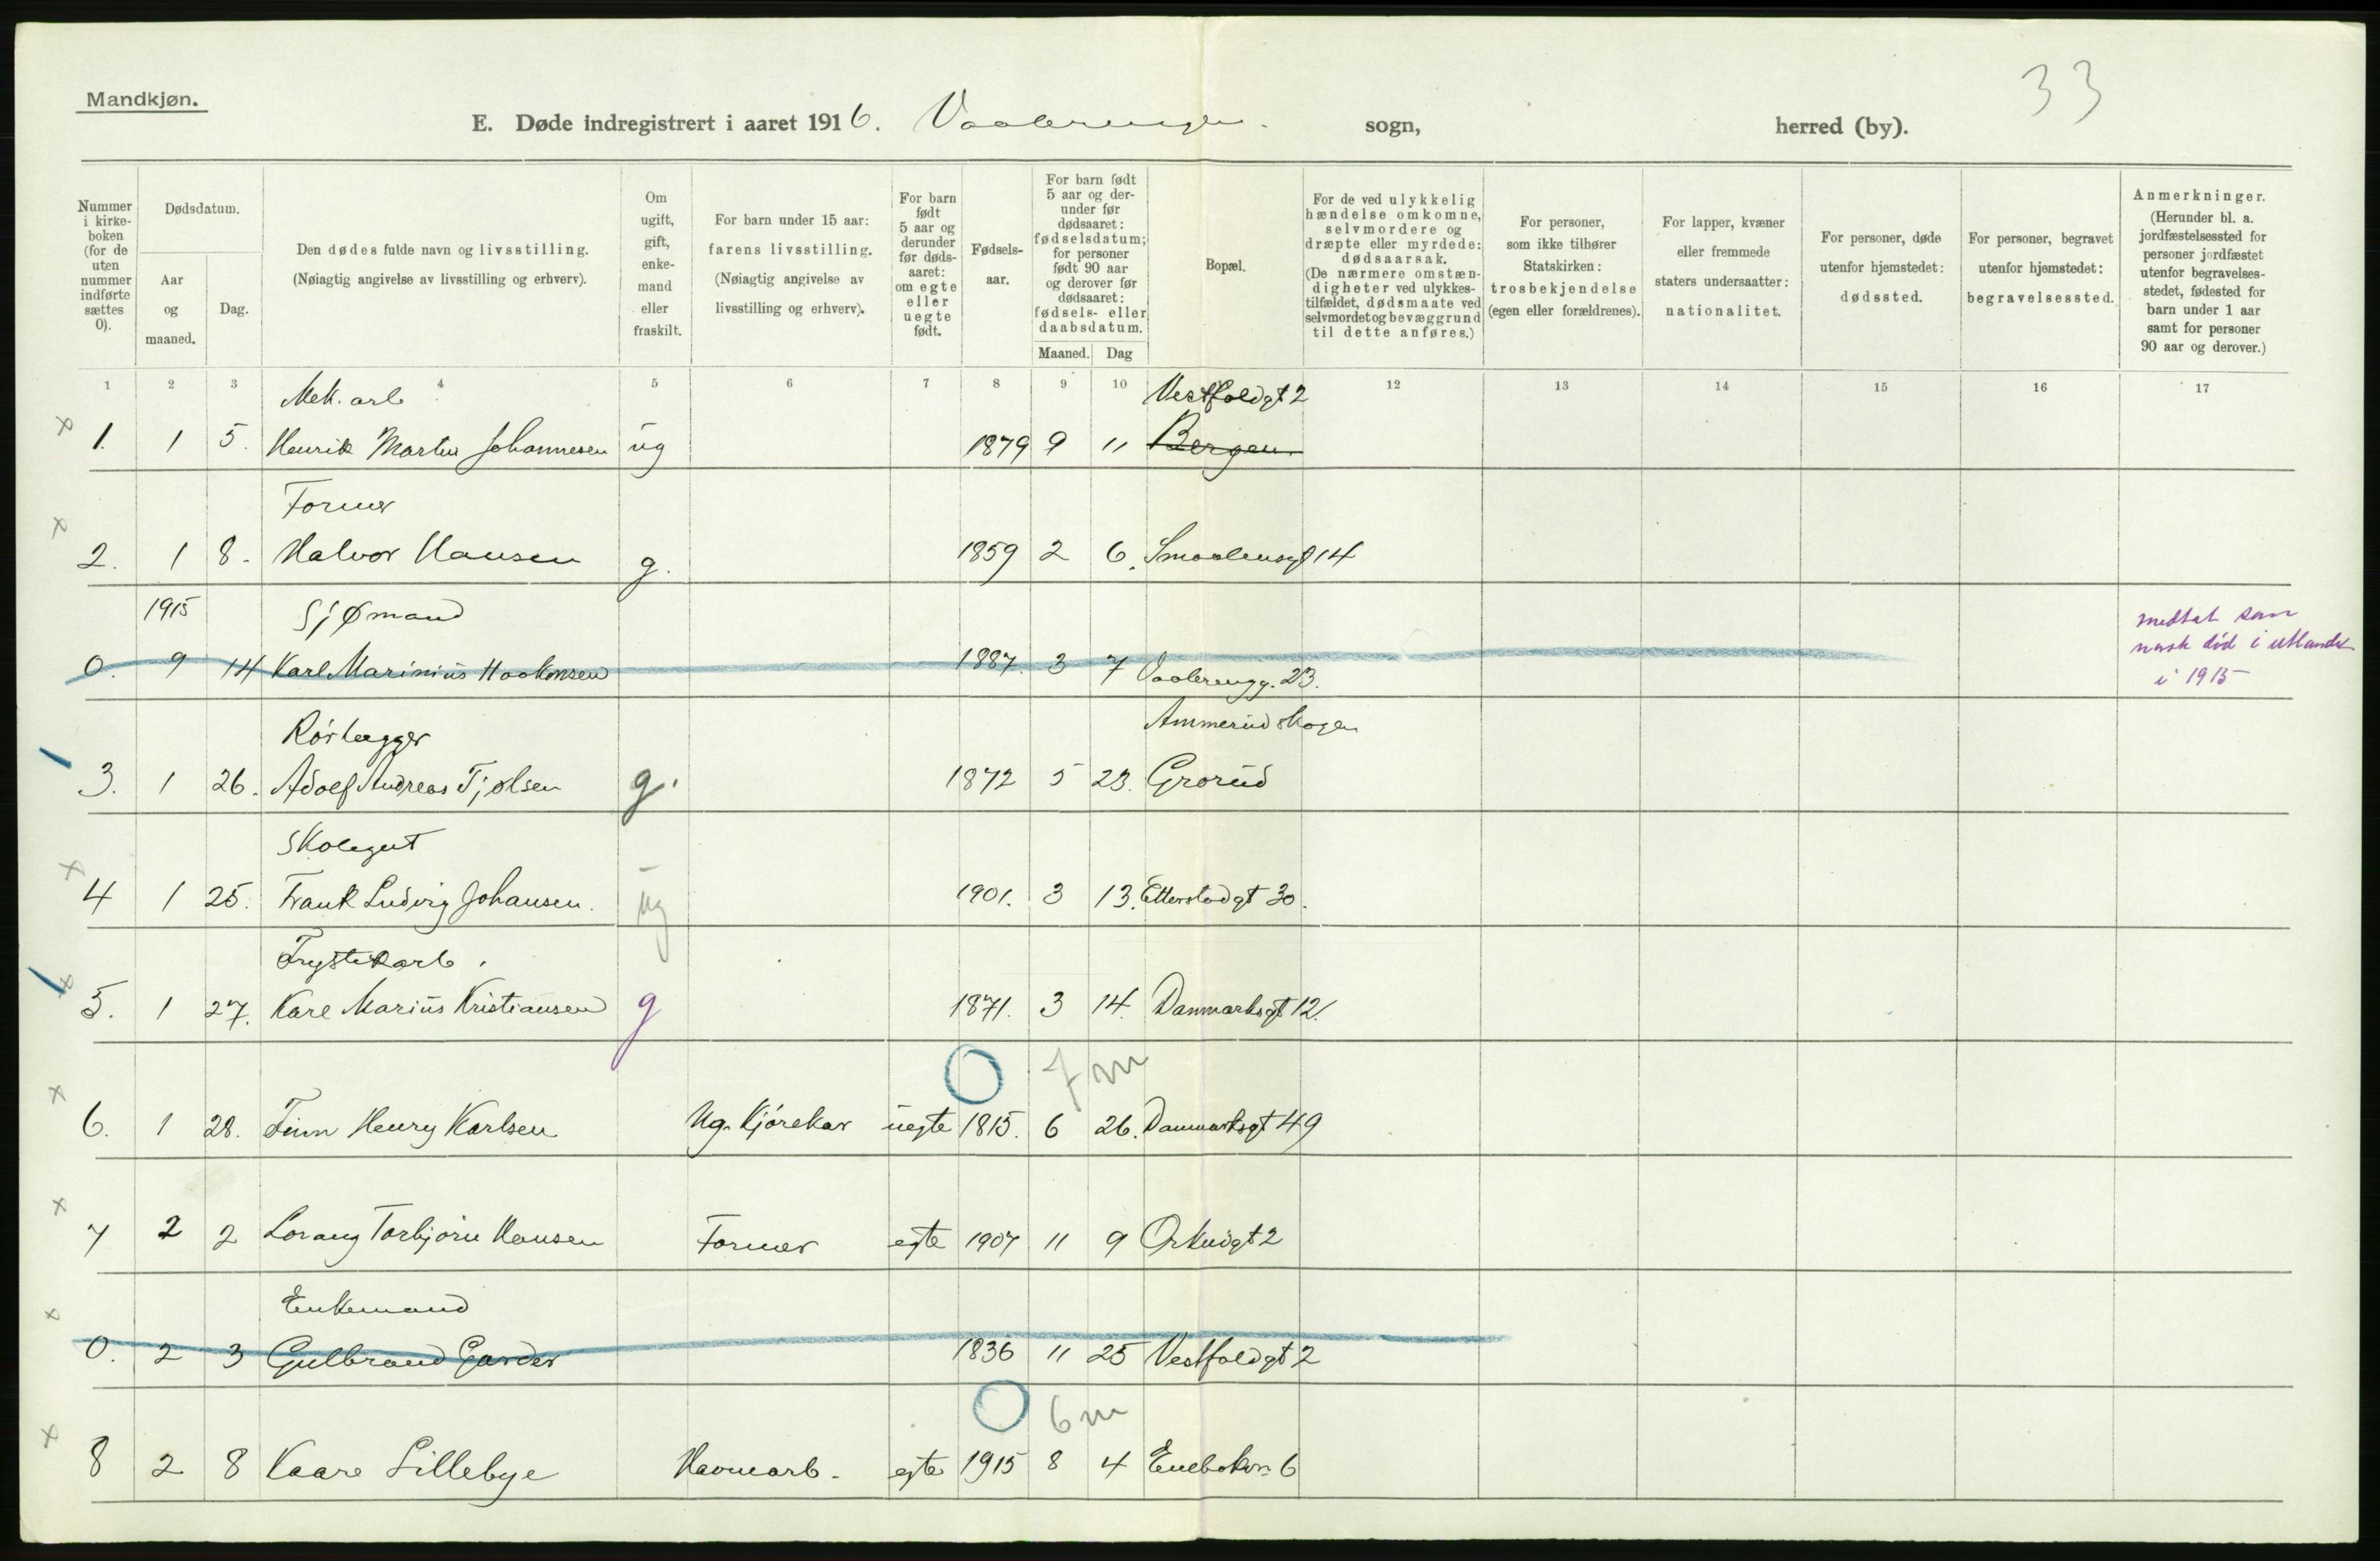 33
Mandkjøn.
E. Døde indregistrert i aaret 1916. Vaalerengen. sogn, herred (by).
Nummer i kirkeboken (for de uten nummer indførte sættes 0).
Dødsdatum.
Aar og maaned.
Dag.
Den dødes fulde navn og livsstilling.
(Nøiagtig angivelse av livsstilling og erhverv).
Om ugift, gift, enkemand eller fraskilt.
For barn under 15 aar:
farens livsstilling.
(Nøiagtig angivelse av livsstilling og erhverv).
For barn født 5 aar og derunder før dødsaaret: om egte eller uegte født.
Fødselsaar.
For barn født 5 aar og derunder før dødsaaret: fødselsdatum; for personer født 90 aar og derover før dødsaaret: fødsels- eller daabsdatum.
Maaned. Dag
Bopæl.
For de ved ulykkelig hændelse omkomne, selvmordere og dræpte eller myrdede: dødsaarsak.
(De nærmere omstændigheter ved ulykkestilfældet, dødsmaate ved selvmordet og bevæggrund til dette anføres.)
For personer, som ikke tilhører Statskirken: trosbekjendelse (egen eller forældrenes).
For lapper, kvæner eller fremmede staters undersaatter: nationalitet.
For personer, døde utenfor hjemstedet: dødssted.
For personer, begravet utenfor hjemstedet: begravelsessted.
Anmerkninger.
(Herunder bl. a. jordfæstelsessted for personer jordfæstet utenfor begravelsesstedet, fødested for barn under 1 aar samt for personer 90 aar og derover.)
1 2 3 4 5 6 7 8 9 10 12 13 14 15 16 17
Mek. arb Vestfoldgt 2
x 1. 1 5. Henrik Martin Johannesen ug 1879 9 11 Bergen
Former
x 2. 1 8. Halvor Hansen g. 1859 2 6. Smaalensgt 14
1915 Sjømand
0. 9 14 Karl Marinius Haakonsen 1887. 3 7 Vaalerengg. 23.
medtat som
norsk død i utlandet
i 1915
Rørlægger Ammerudskogen
3. 1 26. Adolf Andreas Tjølsen g. 1872 5 23. Grorud
Skolegut
x 4 1 25. Frank Ludvig Johansen. ug 1901. 3 13. Etterstadgt 30.
Fryktikarb.
x 5. 1 27. Karl Marius Kristiansen g 1871. 3 14. Danmarksgt 12.
0 7 m
x 6. 1 28. Finn Henry Karlsen Ug. Kjørekar uegte 1815. 6 26. Danmarksgt 49
x 7 2 2 Lorang Torbjørn Hansen Former egte 1907 11 9 Orknøigt 2
Enkemand
x 0. 2 3 Gulbrand Garder 1836 11 25 Vestfoldgt 2
0 6 m
x 8 2 8 Kaare Lillebye Havnearb. egte 1915 8 4 Enebakvn 6